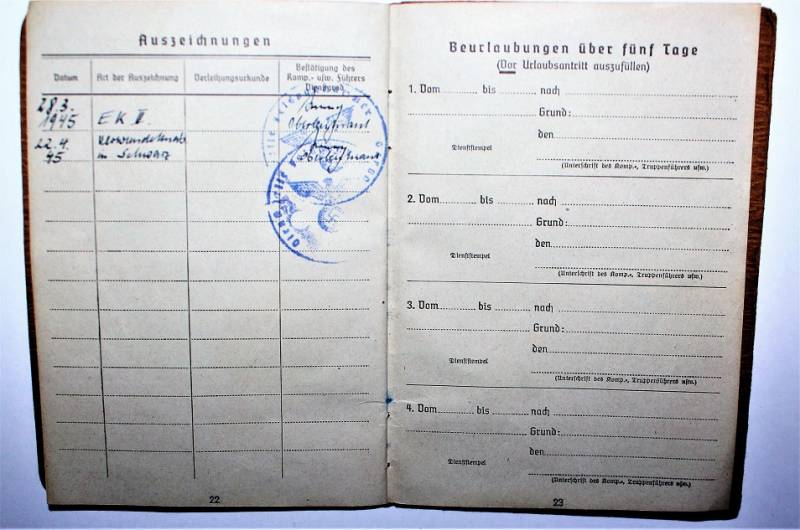 Auszeichnungen
Datum Art der Auszeichnung Verleihungsurkunde Bestätigung des
Komp.- usw. Führers
Dienstgrad
28.3.
1945 E K II. Oberleutnant
22.4.
45 Verwundetenabz.
in Schwarz Oberleutnant
Dienststelle Feldpostnummer
Dienststelle
22
Beurlaubungen über fünf Tage
(Vor Urlaubsantritt auszufüllen)
1. Vom bis nach
Grund:
den
Dienststempel
(Unterschrift des Komp.-, Truppenführers usw.)
2. Vom bis nach
Grund:
den
Dienststempel
(Unterschrift des Komp.-, Truppenführers usw.)
3. Vom bis nach
Grund:
den
Dienststempel
(Unterschrift des Komp.-, Truppenführers usw.)
4. Vom bis nach
Grund:
den
Dienststempel
(Unterschrift des Komp.-, Truppenführers usw.)
23